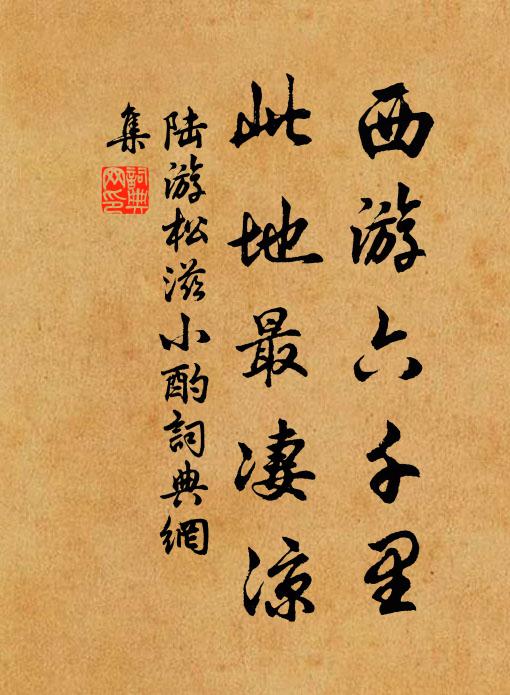 西游六千里
此地最凄凉
陆游松滋小酌詞典網
集
詞典
网印